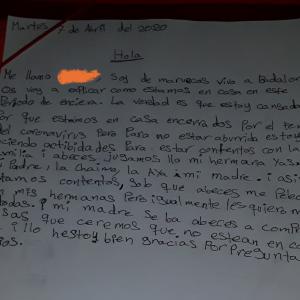 Martes 7 de Abril del 2020
Hola
Me llamo Soy de marruecos vivo a Badalon
Os voy a explicar como estamos en casa en este
Periodo de enciera. La verdad es que estoy cansada
Por que estamos en casa encerrados Por el tem
del coronavirus Pero Para no estar aburrida esto
ciendo actibidades Para estar contentos con la
milia i abeces jugamos llo mi hermana Yasm
i Padre, la chaima, la Aya i mi madre. i asi
tamos contentos, sob que abeces me Peleo
n mis hermanas Pero igualmente les quiero m
odas. i mi madre se ba abeces a comPr
sas, que ceremos que no estean en co
i llo hestoy bien gracias Por Pregunta
ios.